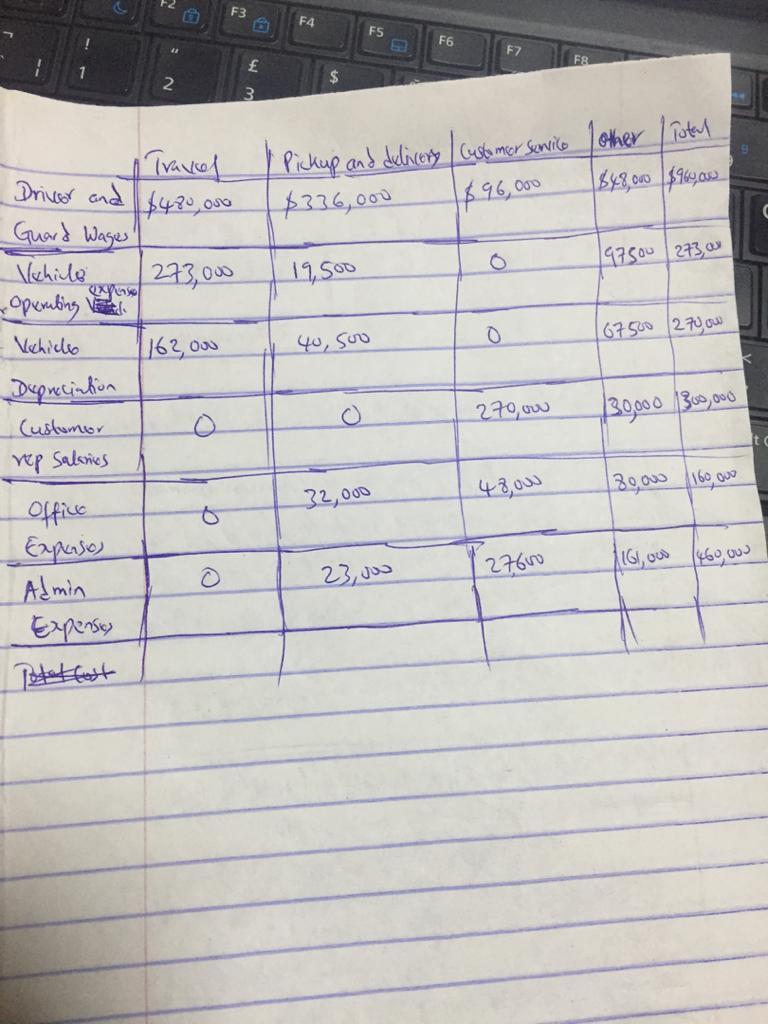 F2 F3 F4 F5 F6 F7 F8
! " £ $
1 2 3
Travel Pickup and delivery Customer service Other Total
Driver and $480,000 $336,000 $96,000 $48,000 $960,000
Guard Wages
Vehicle 273,000 19,500 0 97500 273,000
expense
Operating
Vehicle 162,000 40,500 0 67500 270,000
Depreciation
Customer 0 0 270,000 30,000 300,000
rep Salaries
Office 0 32,000 48,000 80,000 160,000
Expenses
Admin 0 23,000 27,600 161,000 460,000
Expenses
Total Cost